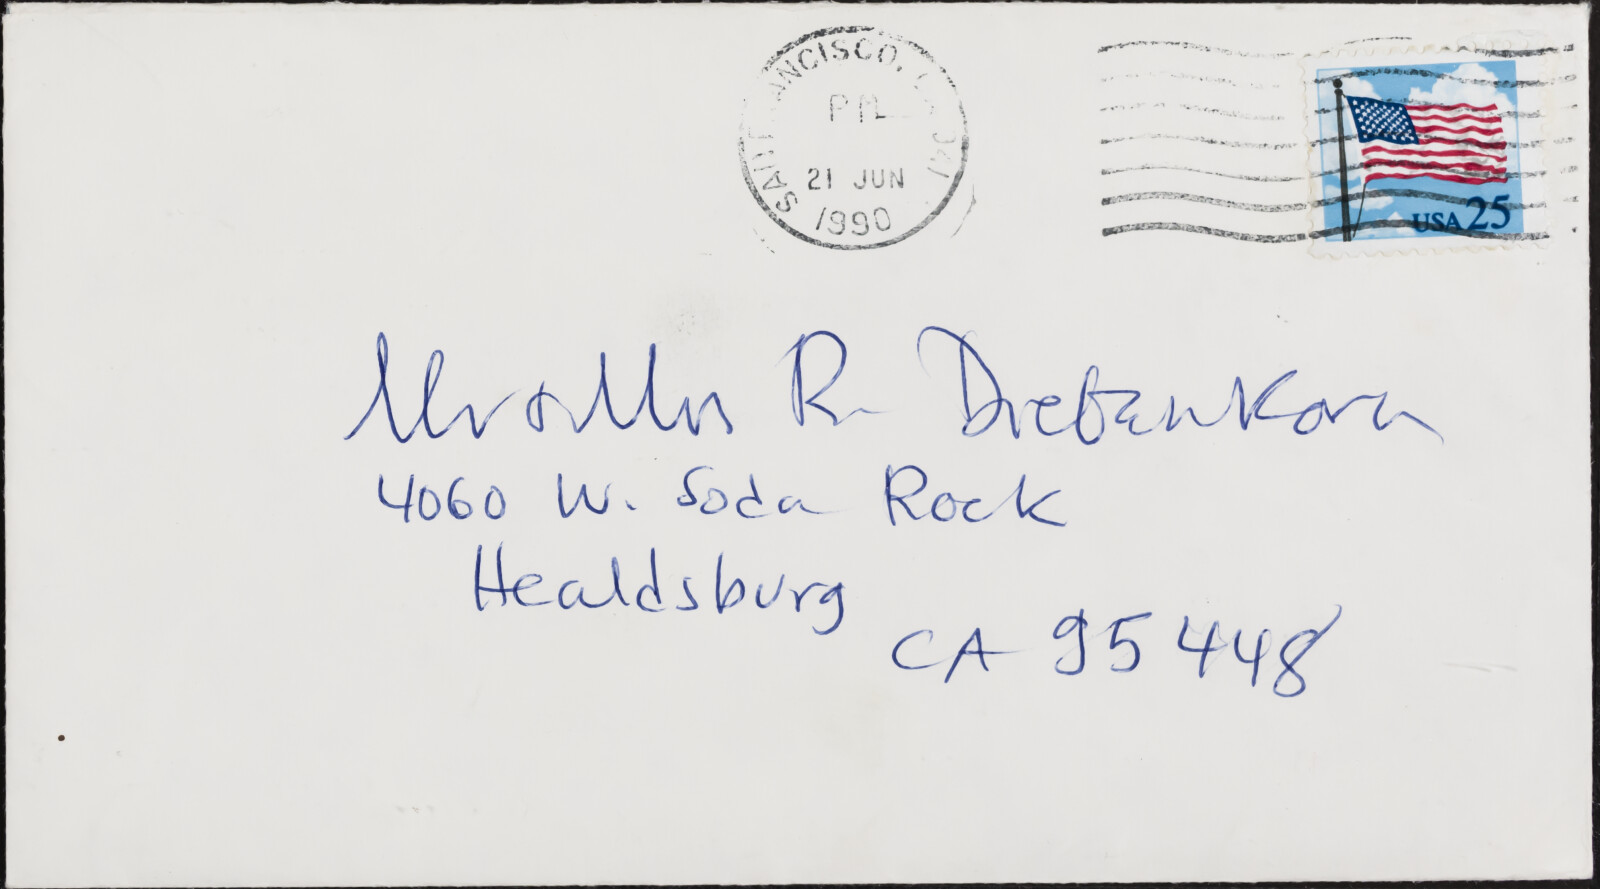 SAN FRANCISCO, CA 941
PM
21 JUN
1990
USA 25
Mr & Mrs R Diebenkorn
4060 W. Soda Rock
Healdsburg
CA 95448